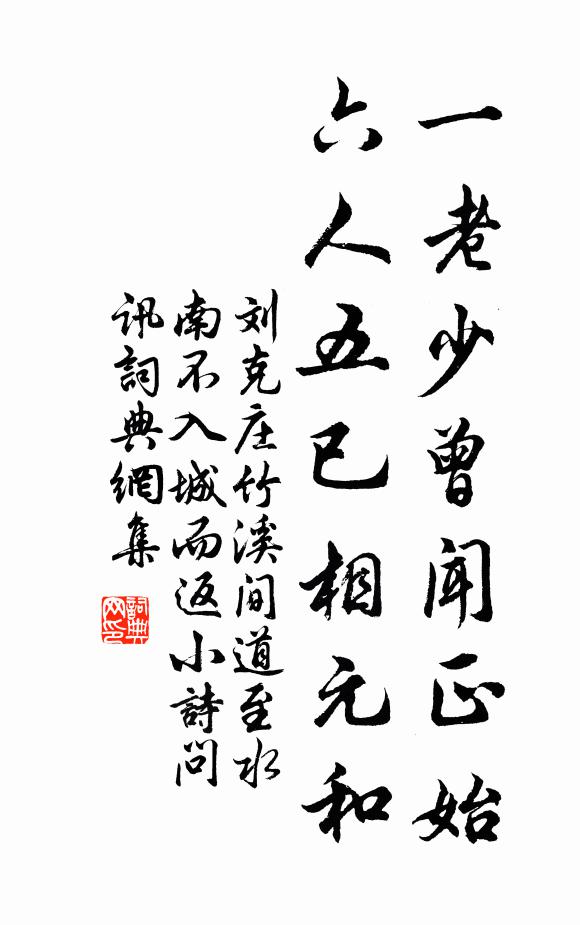 一老少曾闻正始
六人五已相元和
刘克庄竹溪间道至水
南不入城而返小詩问
讯詞典網集
詞典
网印